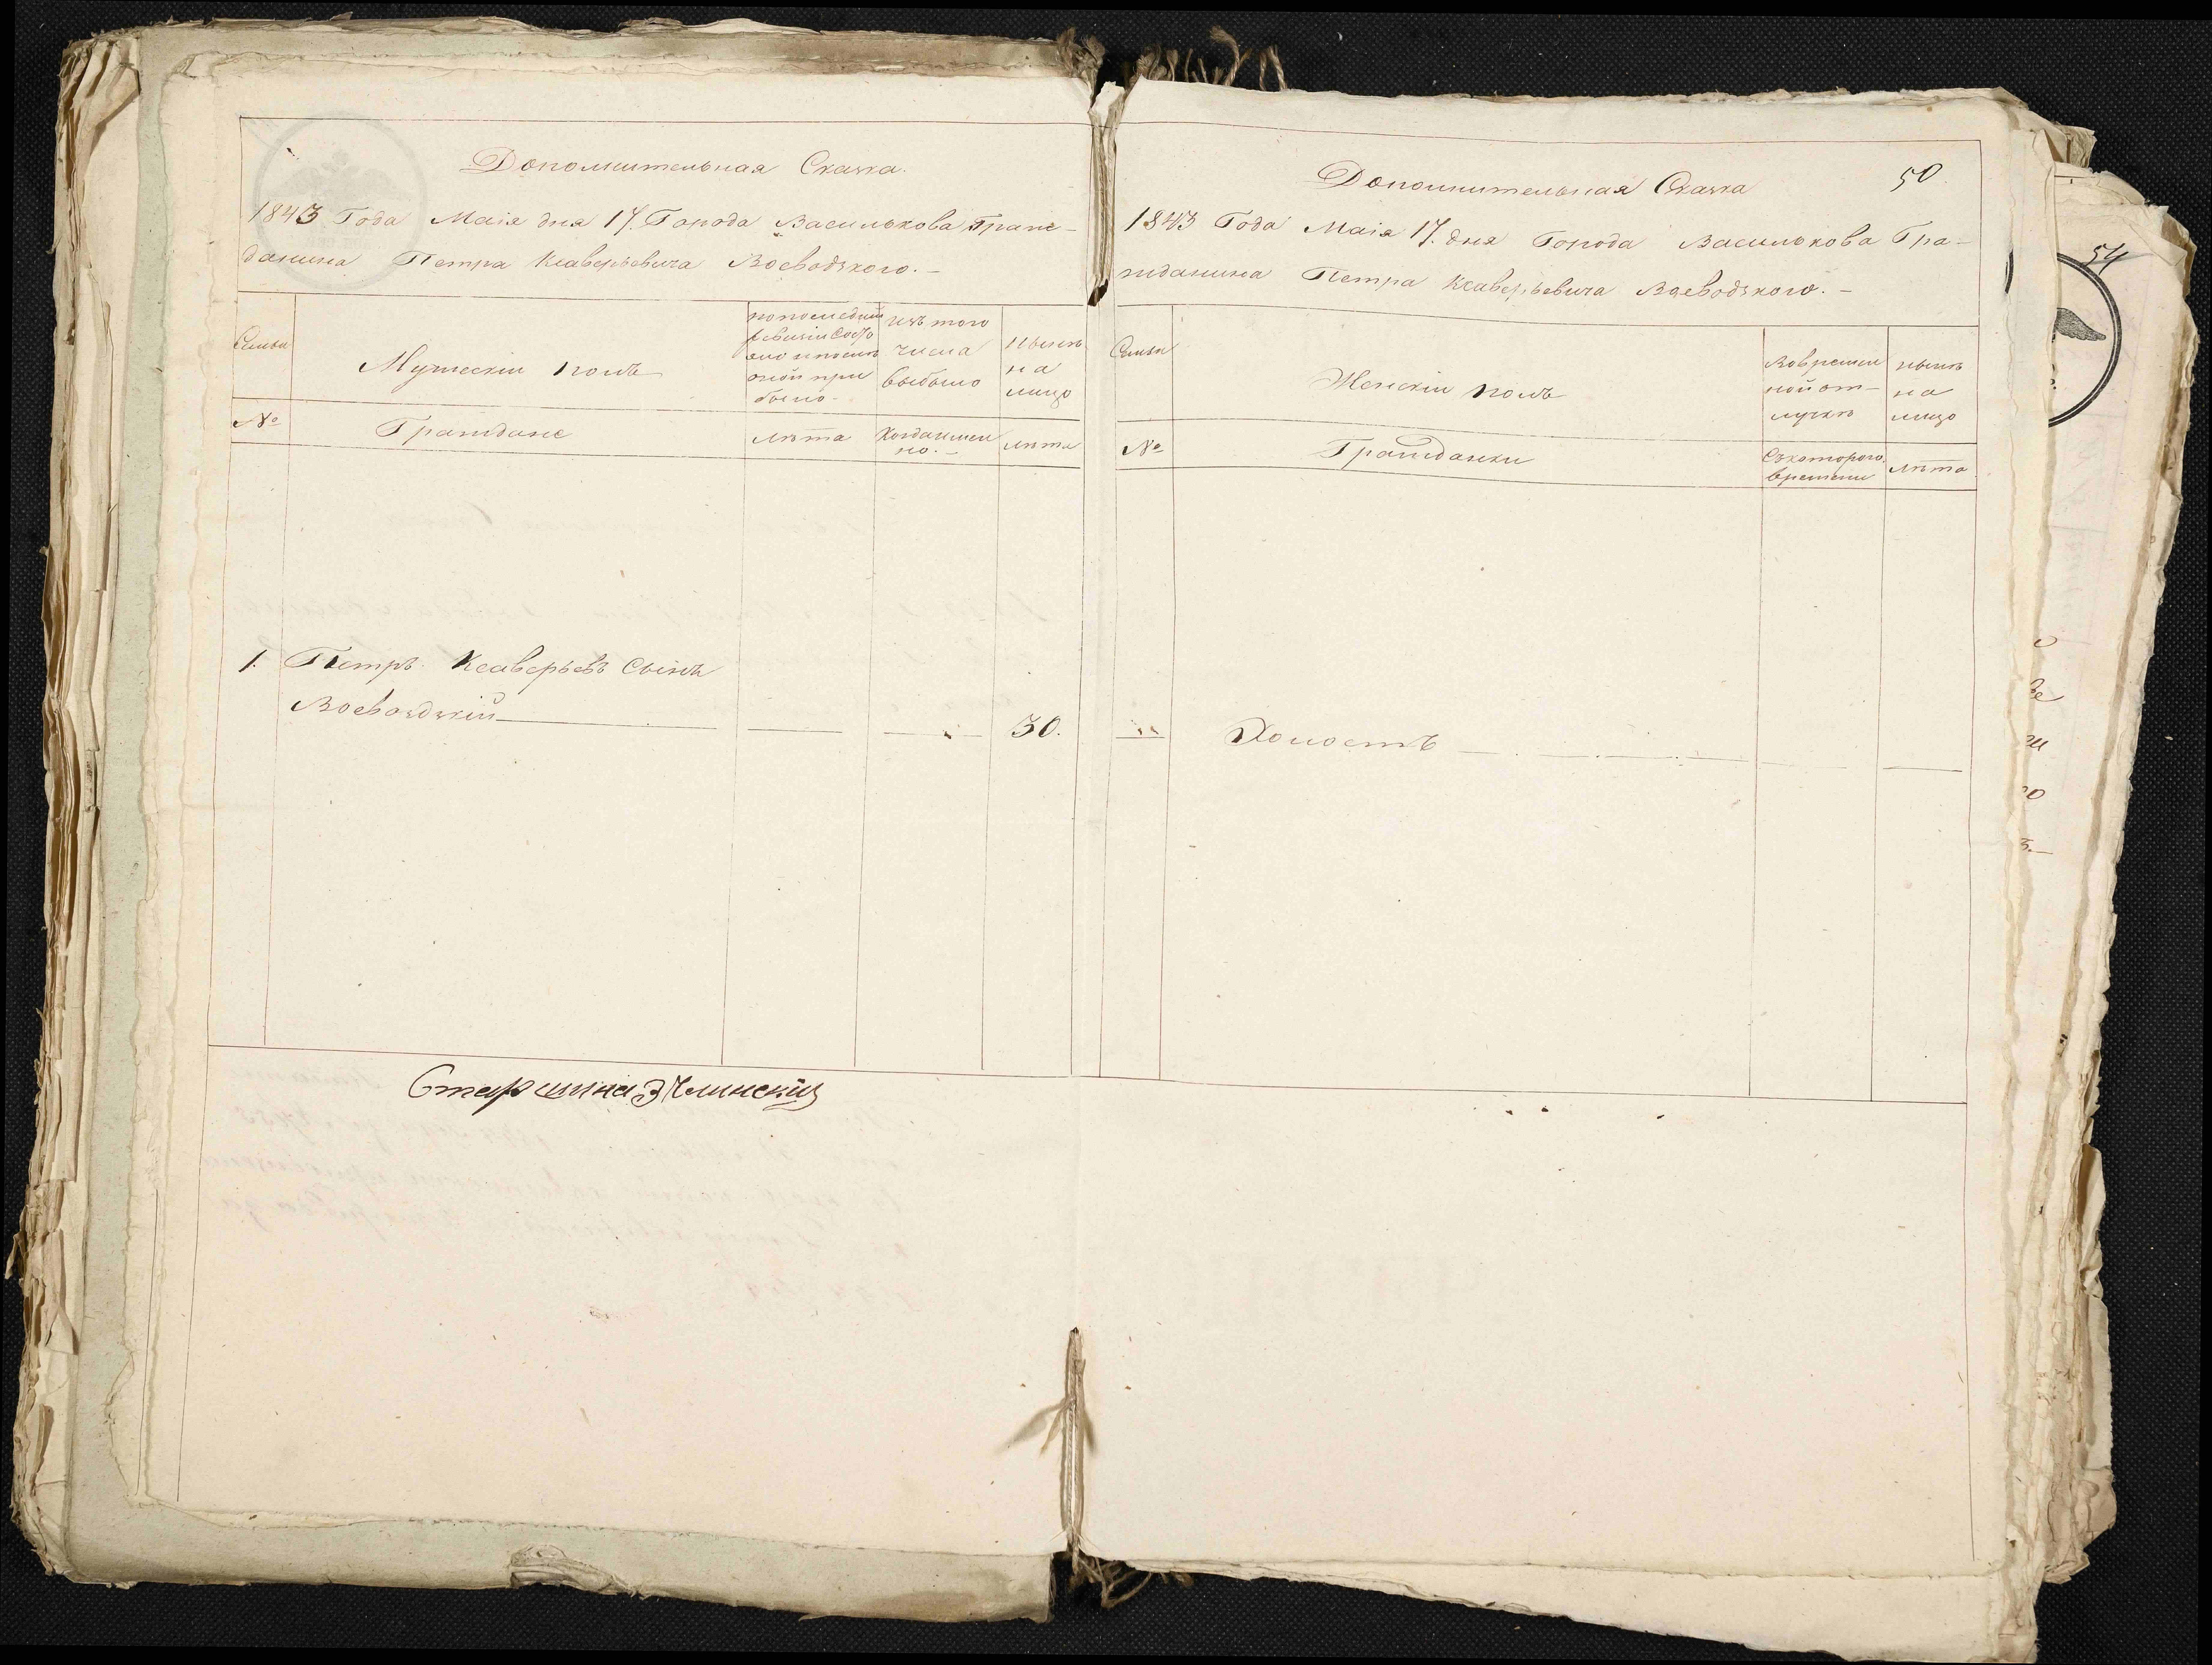 Дополнительная Сказка.
1843 Года Маія дня 17. Города Василькова Граж-
данина Петра Ксаверьевича Воеводзкого. –
Семьи
Мужескій полъ
по последней
ревизіи состо
яло и после
оной при
было
изъ того
числа
выбыло
ныне
на
лицо
№
Граждане
лѣта
Когда имен
но. –
лѣта
1. Петръ Ксаверьевъ Сынъ
Воеводзкій 30.
Старшина
50
Дополнительная Сказка
1843 Года Маія 17. дня Города Василькова Гра-
жданина Петра Ксаверьевича Воеводзкого. –
Семьи
Женскій полъ
Во времен
ной от-
лучкѣ
нынѣ
на
лицо
№
Гражданки
Съ котораго
времени
лѣта
" Холостъ
54